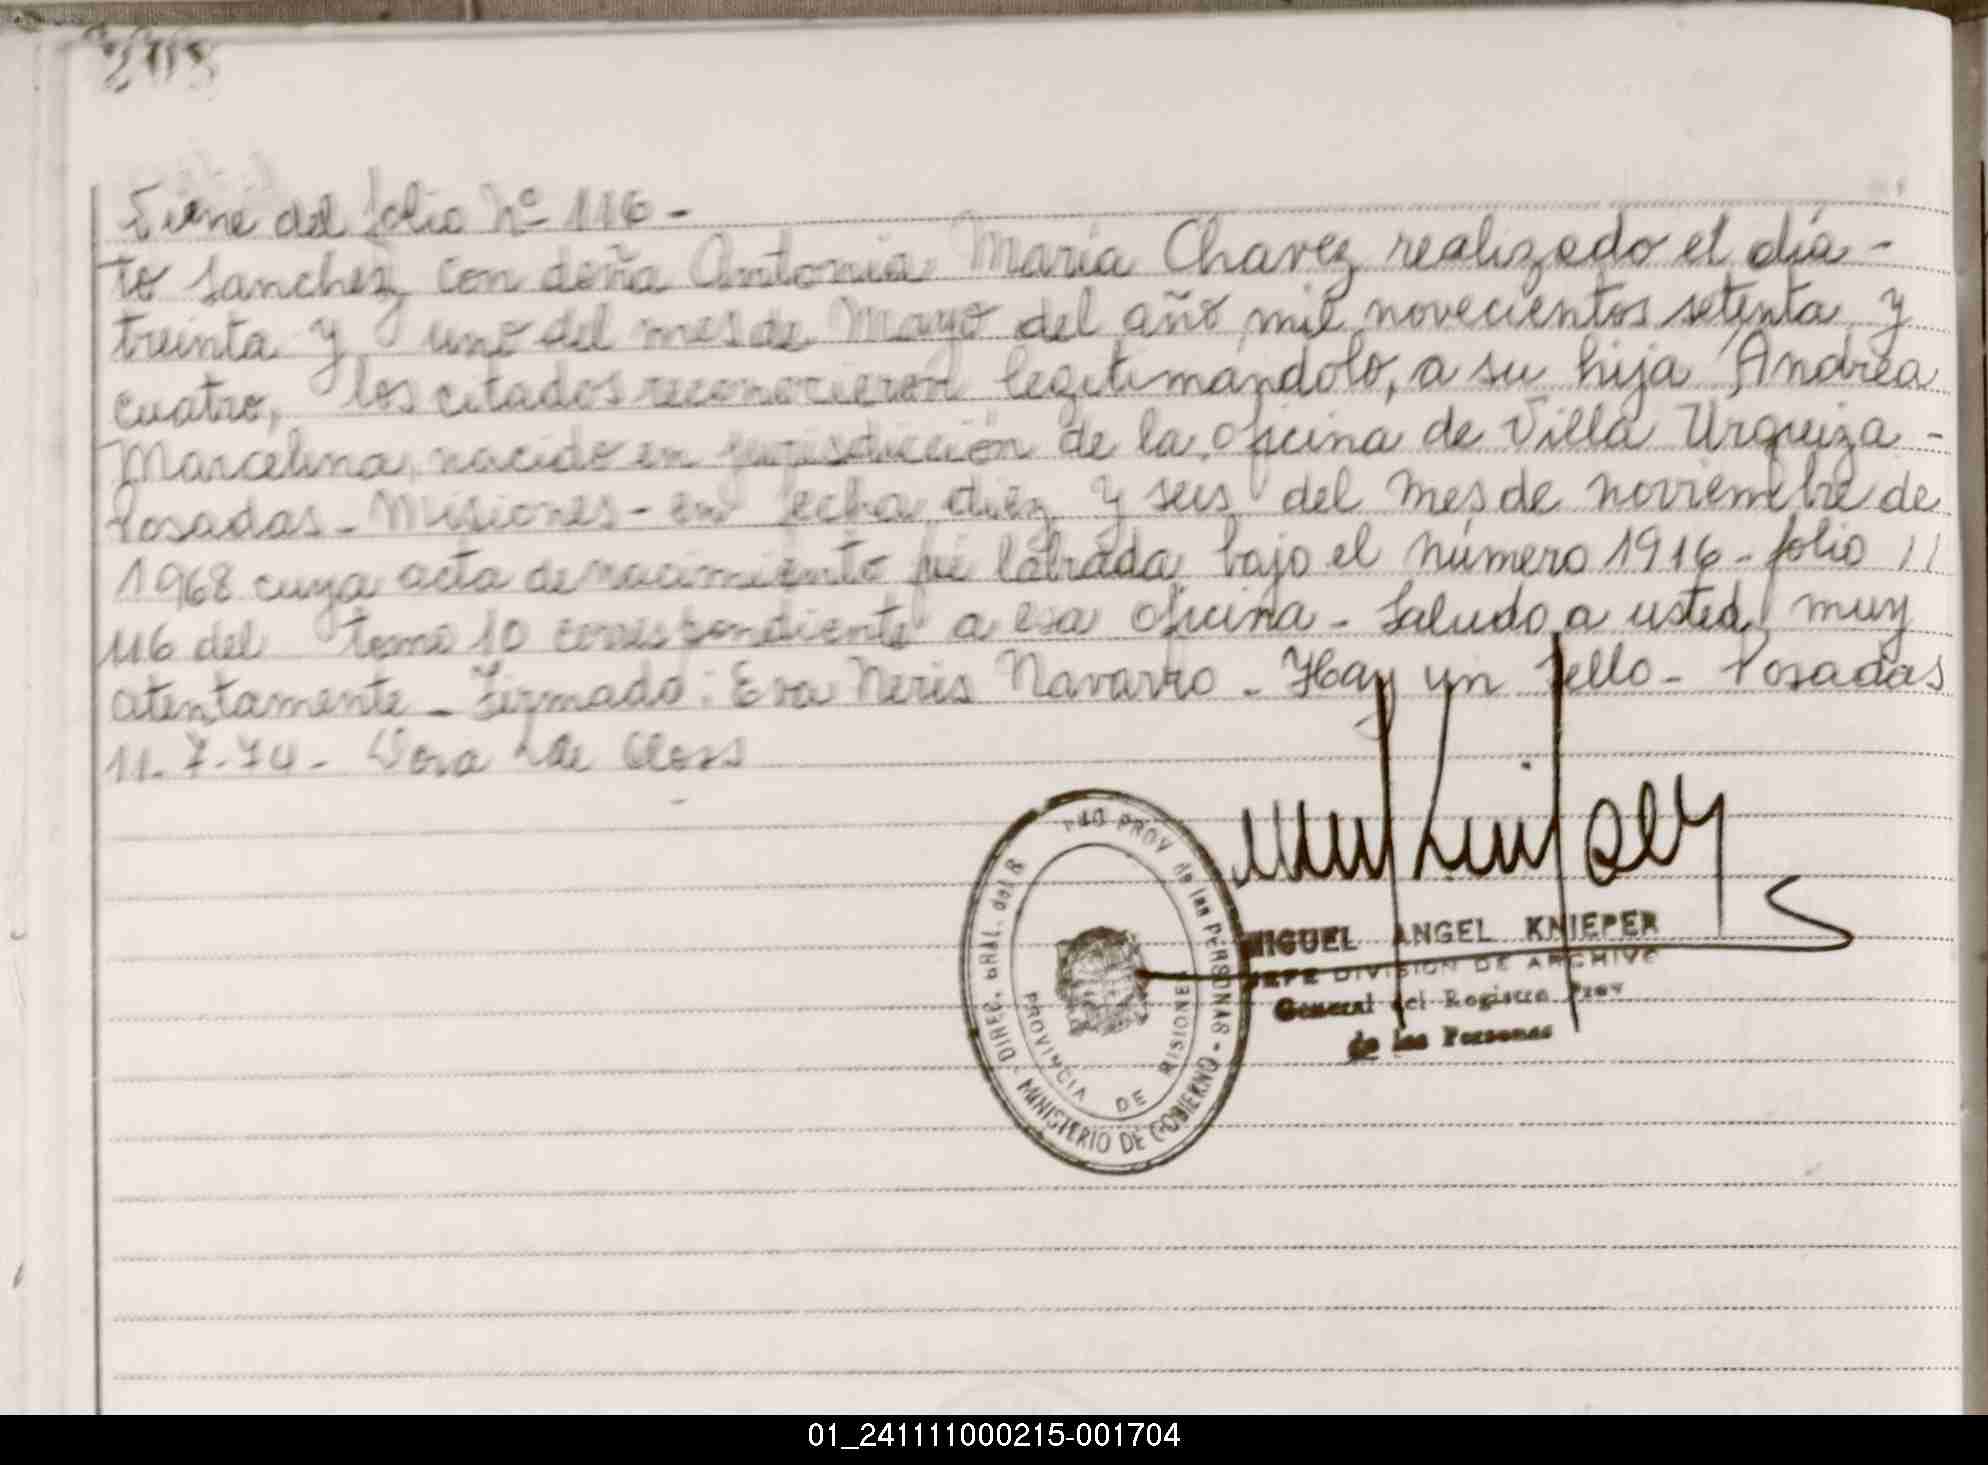 203
Viene del folio Nº 116 -
to Sanchez con doña Antonia Maria Chavez realizado el día -
treinta y uno del mes de Mayo del año mil novecientos setenta y
cuatro, los citados reconocieron legitimándolo, a su hija Andrea
Marcelina, nacido en jurisdicción de la oficina de Villa Urquiza -
Posadas - Misiones - en fecha diez y seis del mes de noviembre de
1968 cuya acta de nacimiento fué labrada bajo el número 1916 - folio //
116 del tomo 10 correspondiente a esa oficina - Saludo a usted muy
atentamente - Firmado: Eva Neris Navarro - Hay un sello - Posadas
11-7-74 - Vera de Closs
DIREC. GRAL. del R PROV de las PERSONAS - MINISTERIO DE GOBIERNO
PROVINCIA DE MISIONES
MIGUEL ANGEL KNIEPER
JEFE DIVISION DE ARCHIVO
General del Registro Prov
de las Personas
01_241111000215-001704